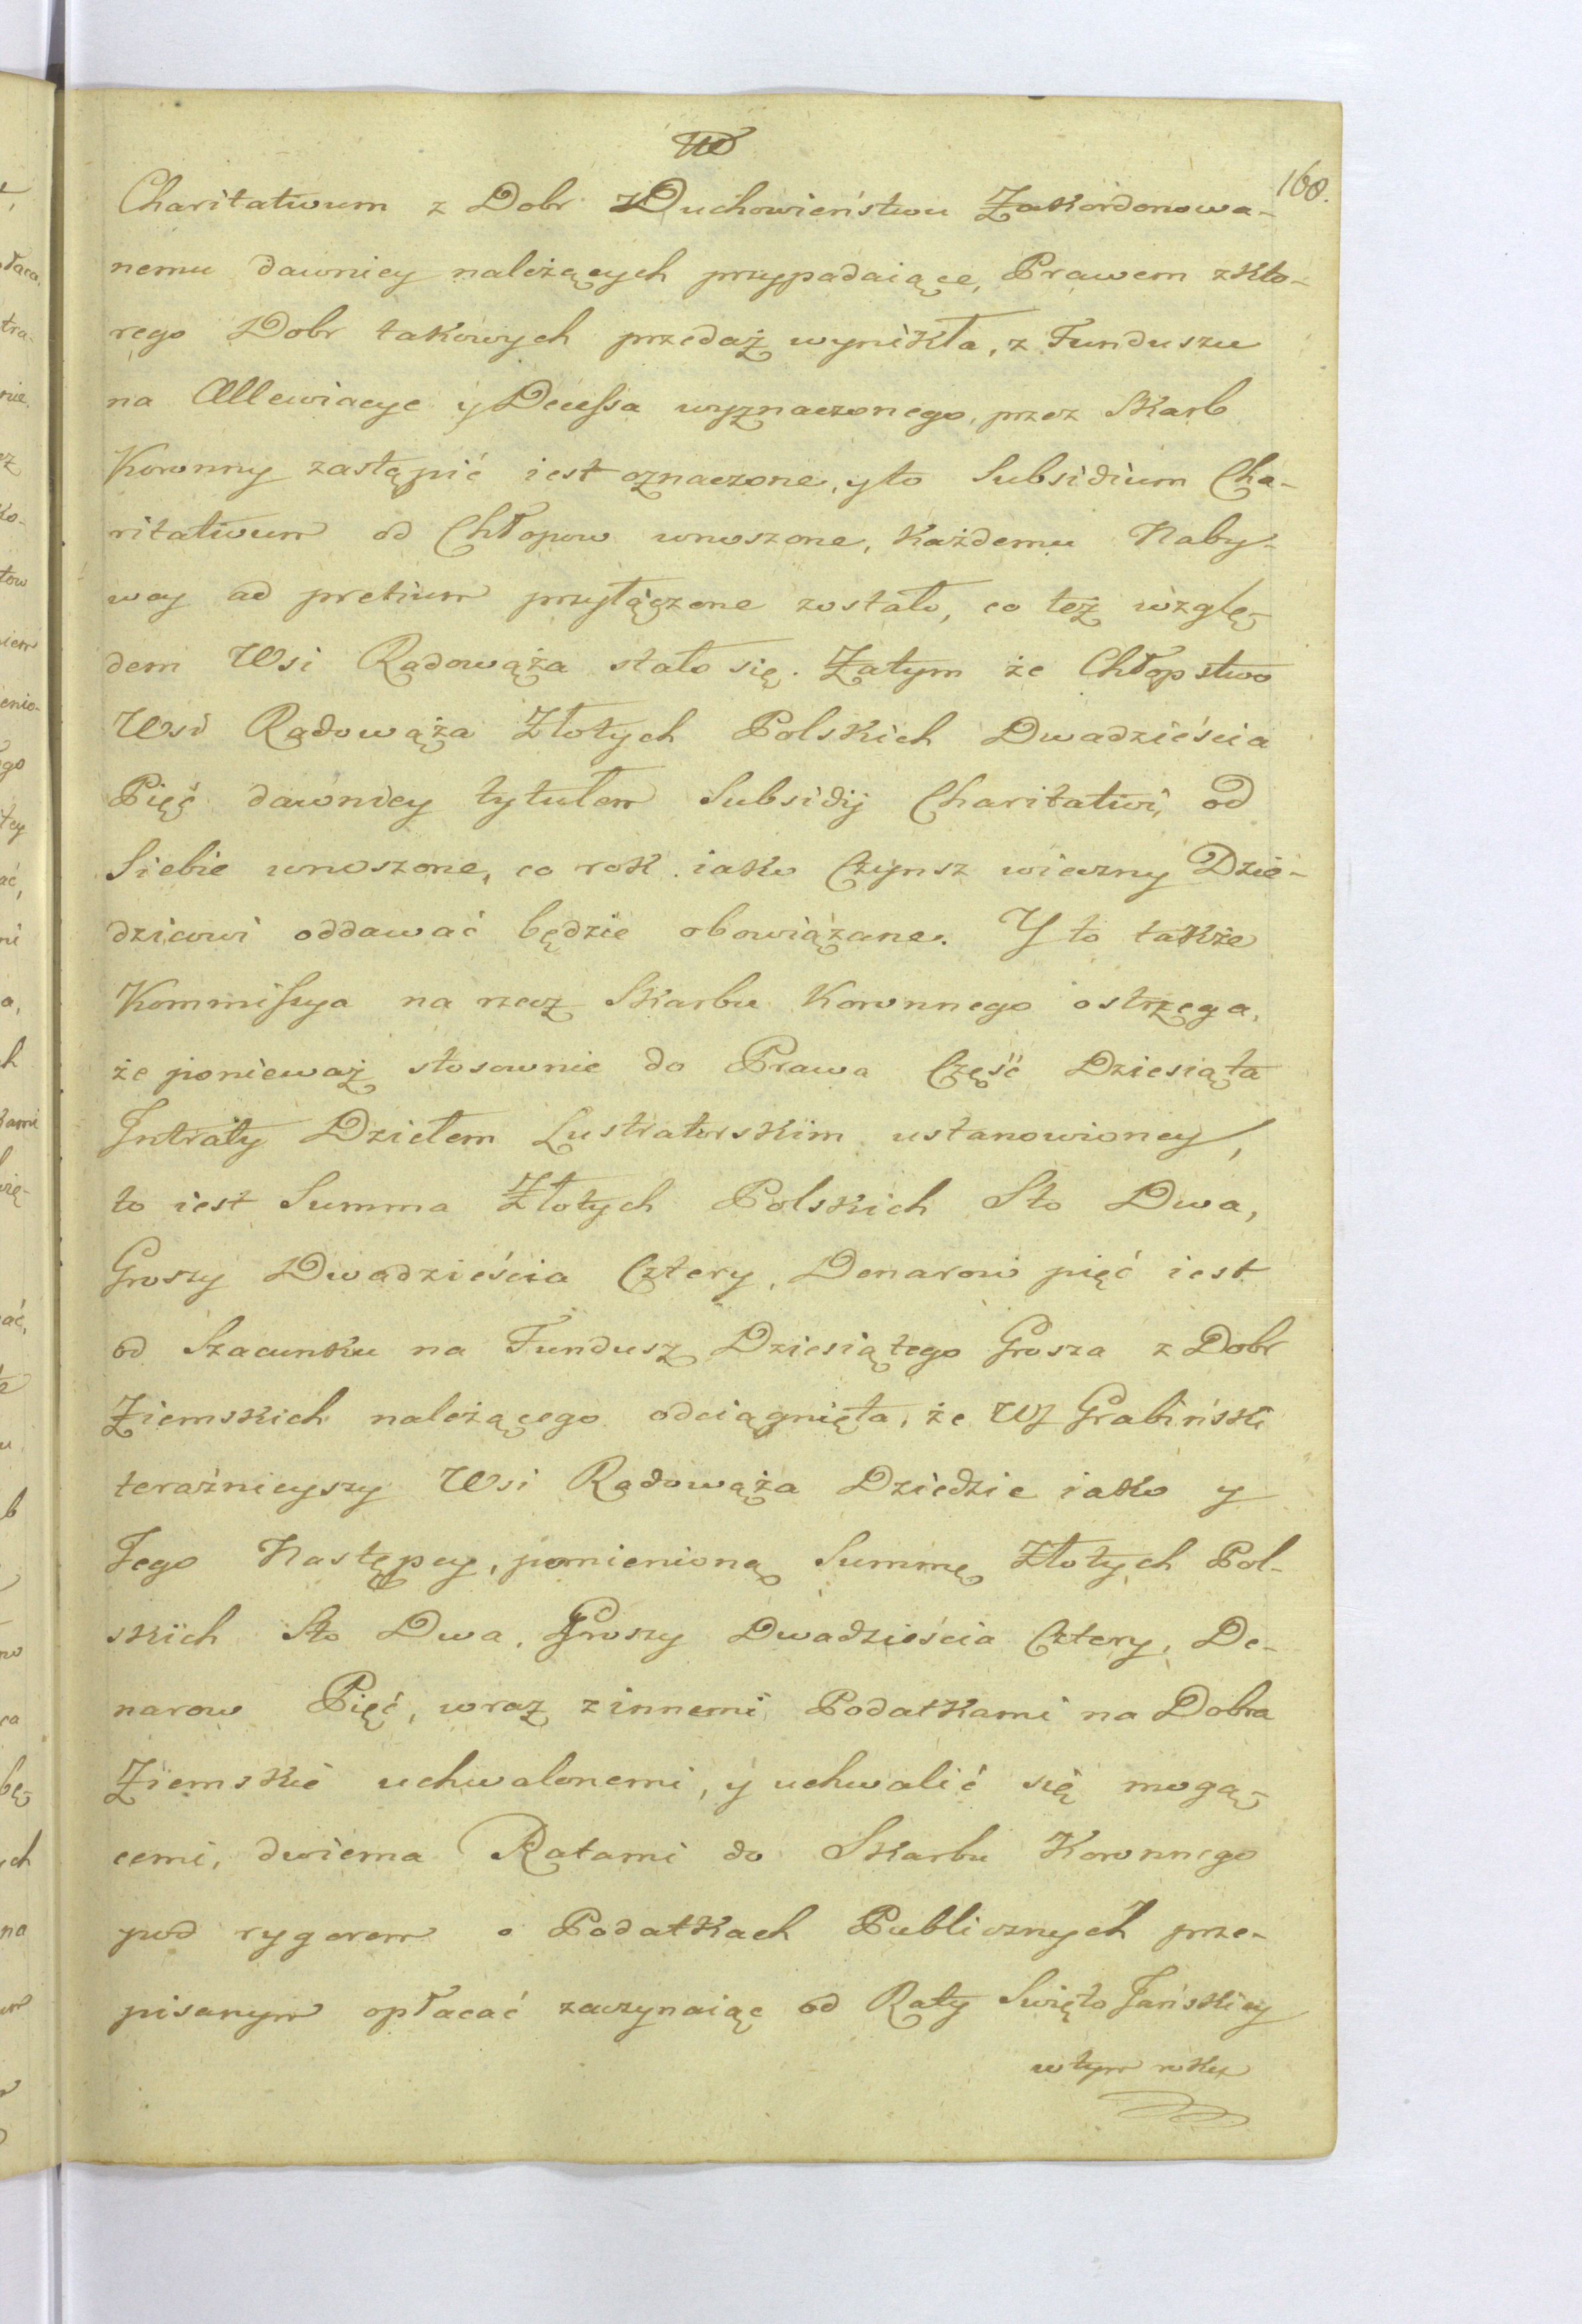 160.
Charitativum z Dobr Duchowieństwu Zakordonowa-
nemu dawniey należących przypadaiące, Prawem z kto-
rego Dobr takowych przedaż wynikła, z Funduszu
na Allewiacye y Decessa wyznaczonego, przez Skarb
Koronny zastąpić iest oznaczone, y to Subsidium Cha-
ritativum od Chłopow wnoszone, każdemu Naby-
wcy ad pretium przyłączone zostało, co też wzglę-
dem Wsi Radowąża stało się. Zatym że Chłopstwo
Wsi Radowąża Złotych Polskich Dwadzieścia
Pięć dawniey tytułem Subsidij Charitativi, od
Siebie wnoszone, co rok iako Czynsz wieczny Dzie-
dzicowi oddawać będzie obowiązane. Y to także
Kommissya na rzecz Skarbu Koronnego ostrzega,
że ponieważ stosownie do Prawa Część Dziesiąta
Intraty Dziełem Lustratorskim ustanowioney,
to iest Summa Złotych Polskich Sto Dwa,
Groszy Dwadzieścia Cztery, Denarow pięć iest
od Szacunku na Fundusz Dziesiątego Grosza z Dobr
Ziemskich należącego odciągnięta, że WJ Grabiński
teraźnieyszy Wsi Radowąża Dziedzic iako y
Jego Następcy, pomienioną Summę Złotych Pol-
skich Sto Dwa, Groszy Dwadzieścia Cztery, De-
narow Pięć, wraz z innemi Podatkami na Dobra
Ziemskie uchwalonemi, y uchwalić się mogą-
cemi, dwiema Ratami do Skarbu Koronnego
pod rygorem o Podatkach Publicznych prze-
pisanym opłacać zaczynaiąc od Raty Święto Jańskiey
w tym roku